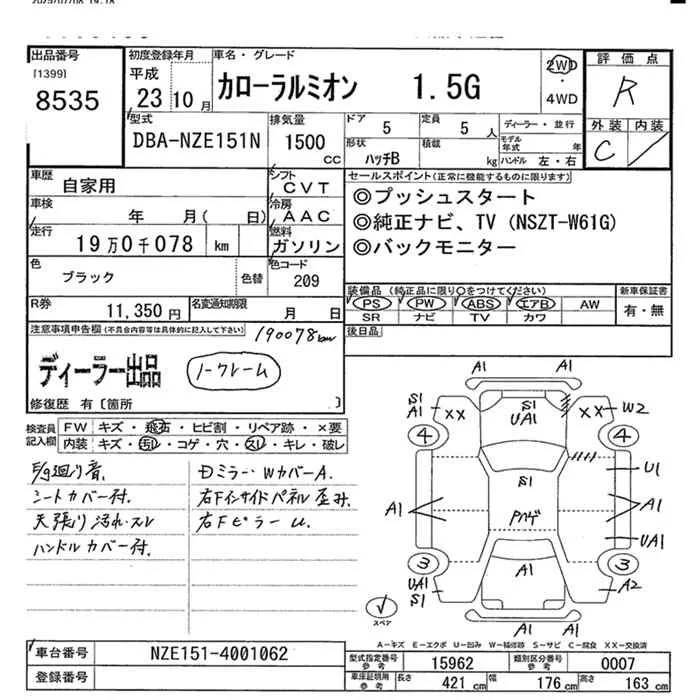 2025/07/08 19:18
出品番号 初度登録年月 車名・グレード 評価点
[1399] 平成 2WD ・ 4WD R
8535 23年10月 カローラルミオン 1.5G
型式 排気量 ドア 定員 ディーラー・並行 外装 内装
DBA-NZE151N 1500 cc 5 5 人 モデル年式 年 C ／
形状 積載 ハンドル 左・右
ハッチB kg
車歴 シフト セールスポイント(正常に機能するものに限ります)
自家用 CVT ◎プッシュスタート
車検 冷房
年 月( 日) AAC ◎純正ナビ、TV (NSZT-W61G)
走行 燃料
19万0千078 km ガソリン ◎バックモニター
色 色替 色コード
ブラック 209
装備品 (純正品に限り○をつけてください) 新車保証書
R券 11,350 円 名変通知期限 月 日 PS PW ABS エアB AW 有・無
SR ナビ TV カワ
注意事項申告欄(不具合内容等は具体的に記入して下さい) 190078km 後日品
ディーラー出品 ノークレーム
修復歴 有〔箇所 〕
検査員記入欄 FW キズ・飛石・ヒビ割・リペア跡・×要
内装 キズ・汚れ・コゲ・穴・スレ・キレ・破レ
E/g廻り音. Dミラー・WカバーA.
シートカバー付. 右Fインサイドパネル歪み.
天張り汚れ・スレ 右FピラーU.
ハンドルカバー付.
A1
A1
S1 A1 XX S1 UA1 XX W2
4 4
S1 U1
A1 Pハゲ A1
UA1
3 A1 3
UA1 S1 A2
A1
スペア
A-キズ E-エクボ U-凹み W-補修跡 S-サビ C-腐食 XX-交換済
車台番号 NZE151-4001062 型式指定番号 参考 15962 類別区分番号 参考 0007
登録番号 車庫証明用 参考 長さ 421 cm 幅 176 cm 高さ 163 cm